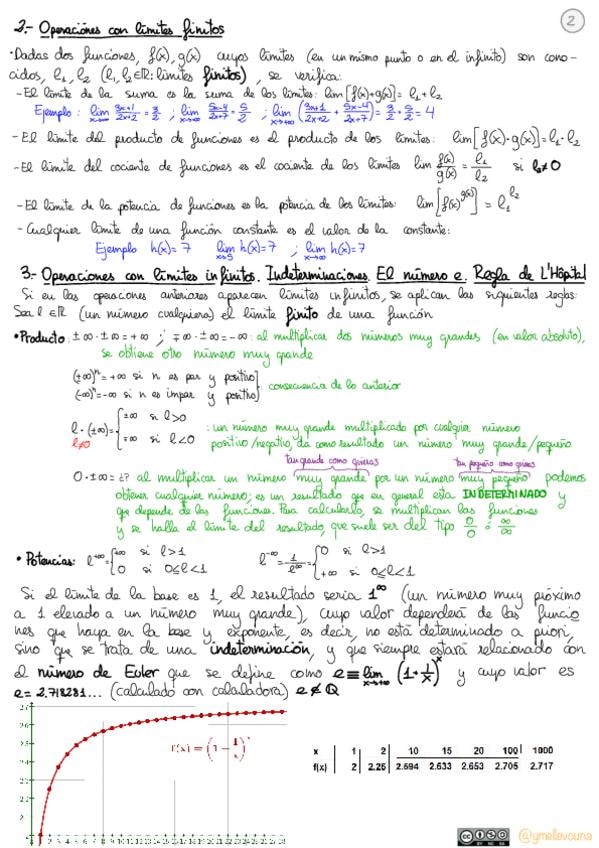 2
2.- Operaciones con límites finitos
•Dadas dos funciones, f(x), g(x) cuyos límites (en un mismo punto o en el infinito) son cono-
cidos, l₁, l₂ (l₁, l₂∈ℝ: límites finitos), se verifica:
-El límite de la suma es la suma de los límites: lim[f(x)+g(x)] = l₁+l₂
-El límite del producto de funciones es el producto de los límites: lim[f(x)·g(x)] = l₁·l₂
-El límite del cociente de funciones es el cociente de los límites lim f(x)/g(x) = l₁/l₂ si l₂≠0
-El límite de la potencia de funciones es la potencia de los límites: lim[f(x)^g(x)] = l₁^l₂
-Cualquier límite de una función constante es el valor de la constante:
Ejemplo h(x)=7 lim x→5 h(x)=7 ; lim x→∞ h(x)=7
3.- Operaciones con límites infinitos. Indeterminaciones. El número e. Regla de L'Hôpital
Si en las operaciones anteriores aparecen límites infinitos, se aplican las siguientes reglas:
Sea l ∈ℝ (un número cualquiera) el límite finito de una función
•Producto: ±∞·±∞=+∞ ; ∓∞·±∞=-∞: al multiplicar dos números muy grandes (en valor absoluto),
se obtiene otro número muy grande
(±∞)ⁿ=+∞ si n es par y positivo
(-∞)ⁿ=-∞ si n es impar y positivo
: consecuencia de lo anterior
l·(±∞)= { ±∞ si l>0
∓∞ si l<0
l≠0
: un número muy grande multiplicado por cualquier número
positivo/negativo, da como resultado un número muy grande/pequeño
tan grande como quieras tan pequeño como quieras
0·±∞=¿? al multiplicar un número muy grande por un número muy pequeño podemos
obtener cualquier número; es un resultado que en general esta INDETERMINADO y
que depende de las funciones. Para calcularlo, se multiplican las funciones
y se halla el límite del resultado, que suele ser del tipo 0/0 ó ∞/∞
•Potencias: l^+∞= { +∞ si l>1
0 si 0≤l<1
l^-∞= 1/l^∞ = { 0 si l>1
+∞ si 0≤l<1
Si el límite de la base es 1, el resultado sería 1^∞ (un número muy próximo
a 1 elevado a un número muy grande), cuyo valor dependerá de las funcio
nes que haya en la base y exponente, es decir, no está determinado a priori,
sino que se trata de una indeterminación, y que siempre estará relacionado con
el número de Euler que se define como e≡lim x→+∞ (1+1/x)^x y cuyo valor es
e= 2.718281... (calculado con calculadora) e∉ℚ
x 1 2 10 15 20 100 1000
f(x) 2 2.25 2.594 2.633 2.653 2.705 2.717
@ymellevouna